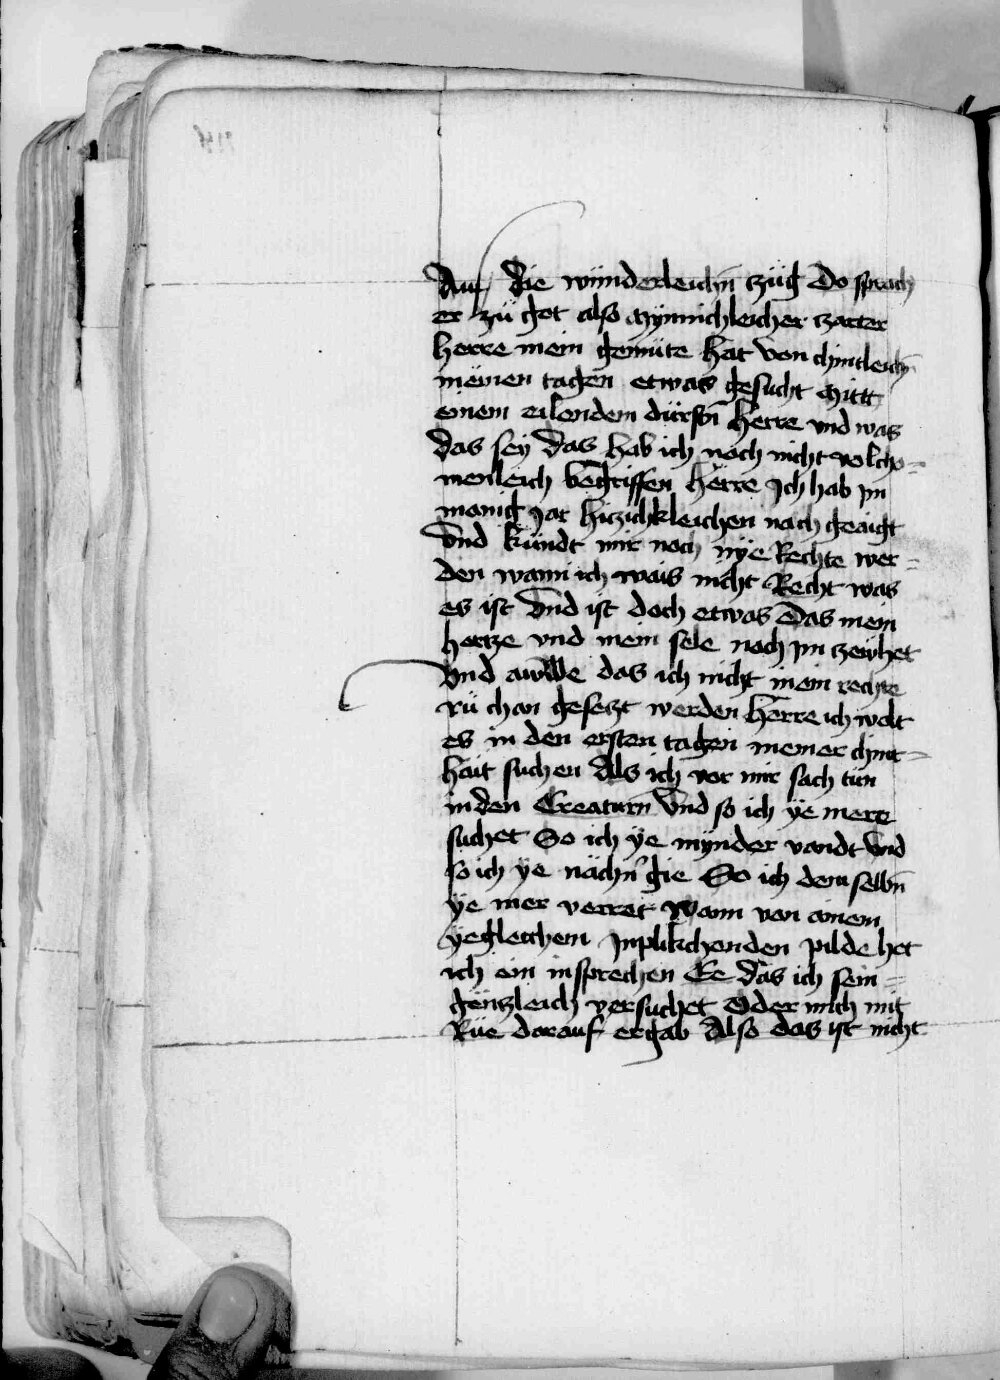 Auf die wunderleichn̄ zúg Do sprach
er zú got also Mynnichleicher zarter
herre mein gemúte hat von chintleichn̄
meinen tagen etwas gesucht Mitt
einem eilendem dúrstn̄ Herre vnd was
das sey Das hab ich noch nicht volcho=
menleich begriffen Herre Ich hab im
manig Jar hiczichkleichen nach geaigt
Vnd kúndt mir noch nye Rechte wer=
den wann ich wais nicht Recht was
es ist Vnd ist doch etwas Das mein
hertze vnd mein sele nach im zewhet
Vnd das ich nicht in ein rechte
rú chan geseczt werden Herre ich wolt
es in den ersten tagen meiner chint=
hait suchen Als ich vor mir sach tún
in den Creaturn̄ Vnd so ich ye mere
suchet So ich ye mynder vandt Vnd
so ich ye nächn̄ gie So ich dem selbn̄
ye mer verret Wann von ainem
yegleichem inplikchenden pilde het
ich ein insprechen Ee das ich sein=
gentzleich versuchet Oder mich mit
Rúe darauf ergab Also das ist nicht